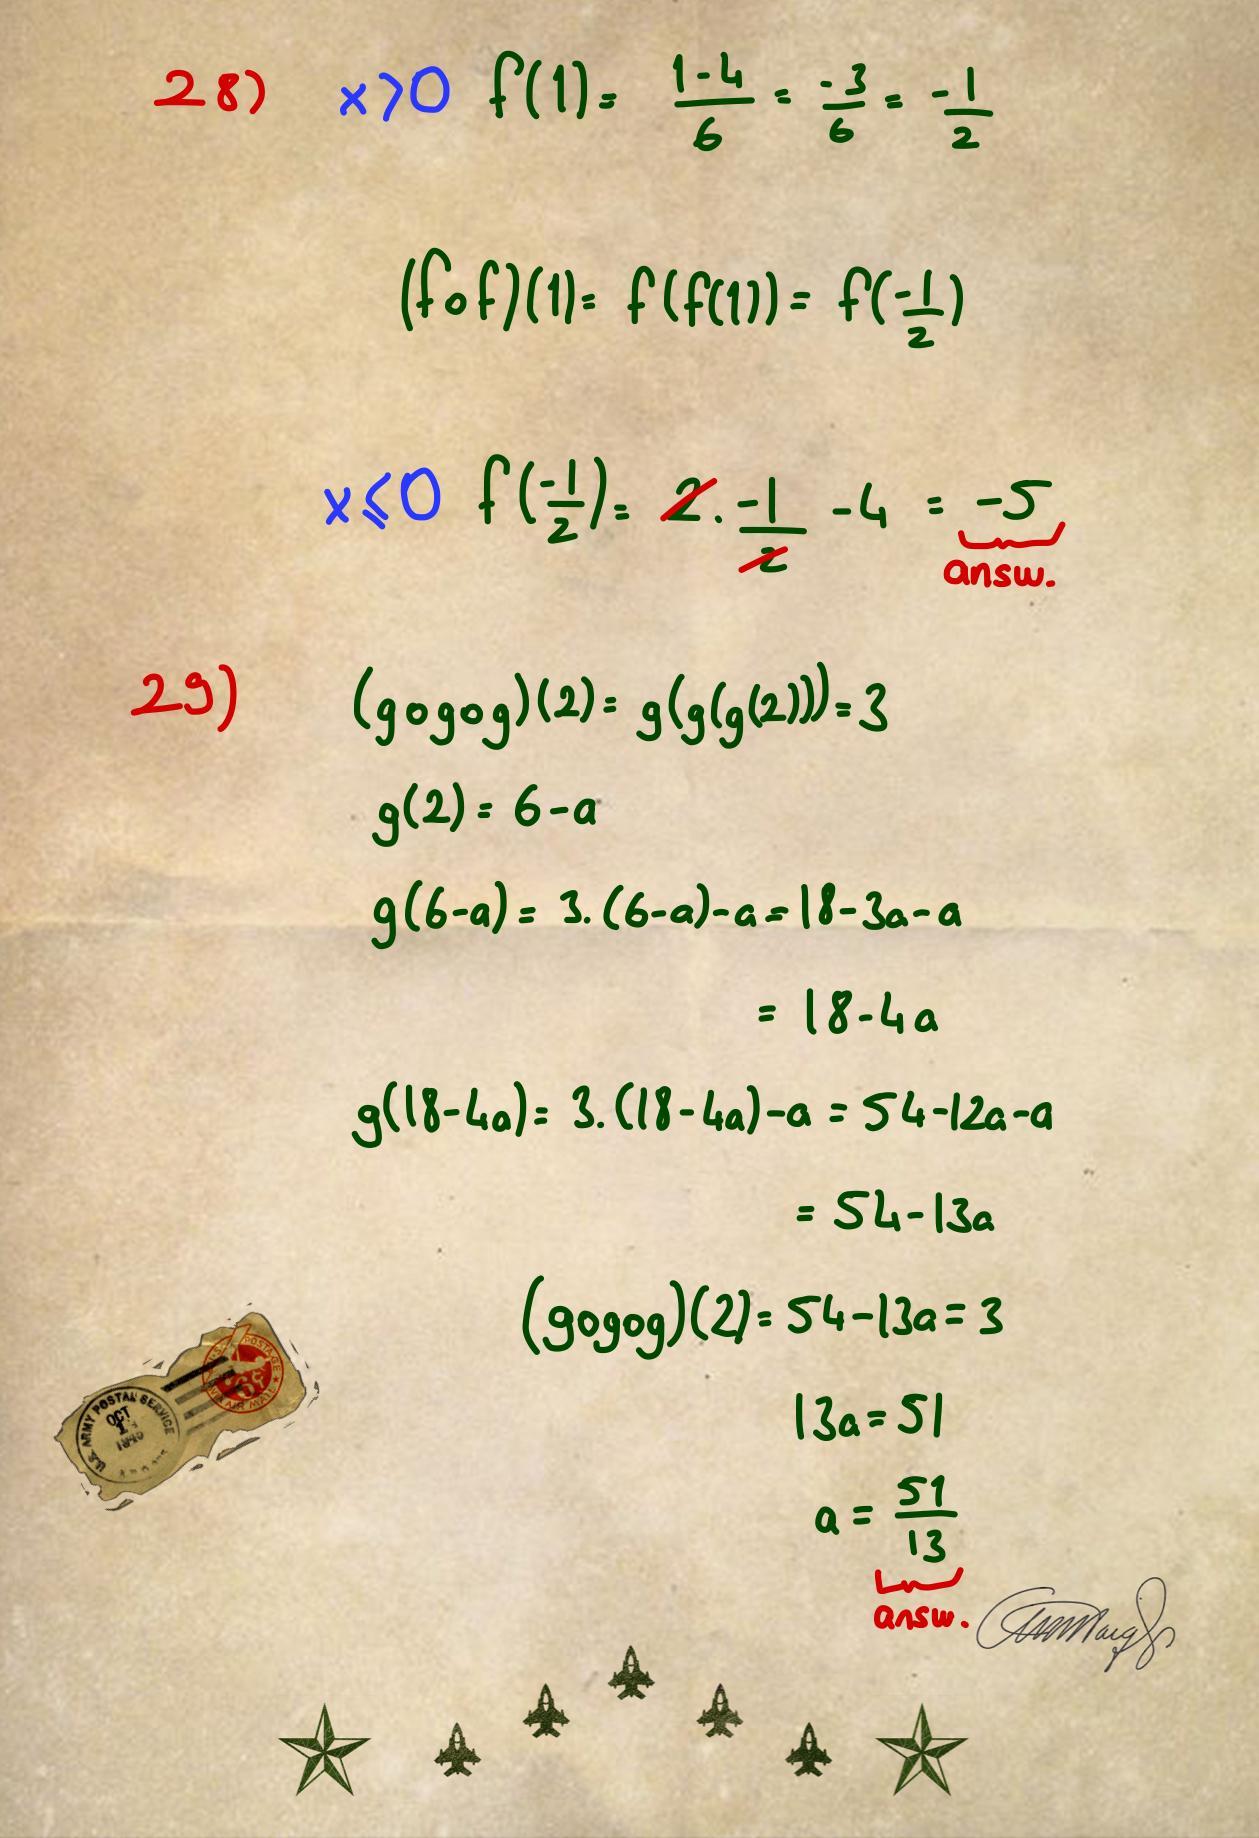 28) x>0 f(1)= 1-4/6 = -3/6 = -1/2
(fof)(1)= f(f(1)) = f(-1/2)
x≤0 f(-1/2)= 2·-1/2 -4 = -5
answ.
29) (gogog)(2)= g(g(g(2)))=3
g(2)= 6-a
g(6-a)= 3.(6-a)-a=18-3a-a
= 18-4a
g(18-4a)= 3.(18-4a)-a = 54-12a-a
= 54-13a
(gogog)(2)= 54-13a=3
13a=51
a= 51/13
answ.
U.S. ARMY POSTAL SERVICE
OCT
POSTAGE
6¢
AIR MAIL